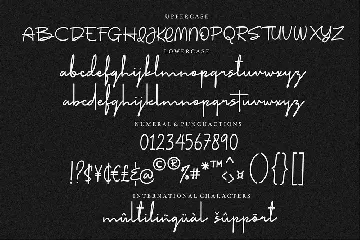 UPPERCASE
ABCDEFGHIJKLMNOPQRSTUVWXYZ
LOWERCASE
abcdefghijklmnopqrstuvwxyz
abcdefghijklmnopqrstuvwxyz
NUMERAL & PUNCTUATIONS
01234567890
!?¢¥₵€££&@©®%#*™^‹›¤(){}[]
INTERNATIONAL CHARACTERS
mûltilingüàl šûppört